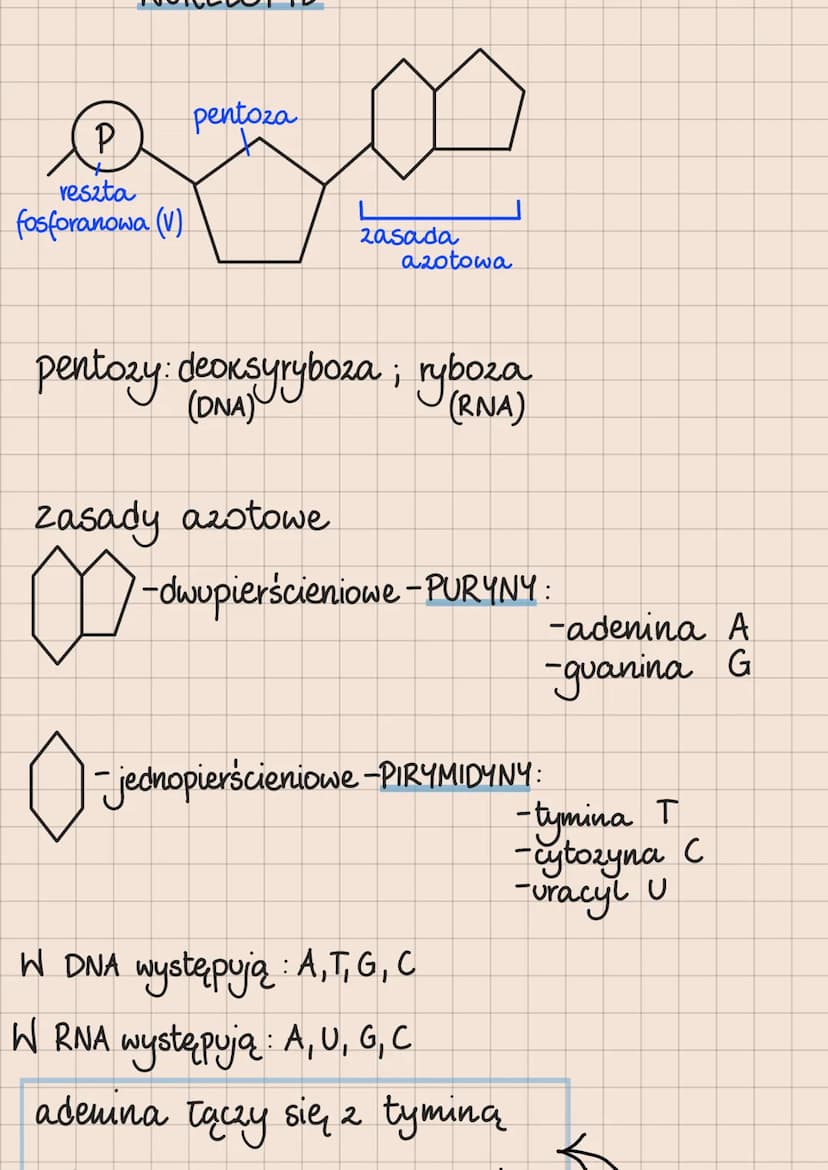 P
pentoza
reszta
fosforanowa (V)
zasada
azotowa
pentozy: deoksyryboza ; ryboza
(DNA) (RNA)
zasady azotowe
-dwupierścieniowe - PURYNY:
-adenina A
-guanina G
- jednopierścieniowe - PIRYMIDYNY:
-tymina T
-cytozyna C
-uracyl U
W DNA występują : A, T, G, C
W RNA występują : A, U, G, C
adenina łączy się z tyminą